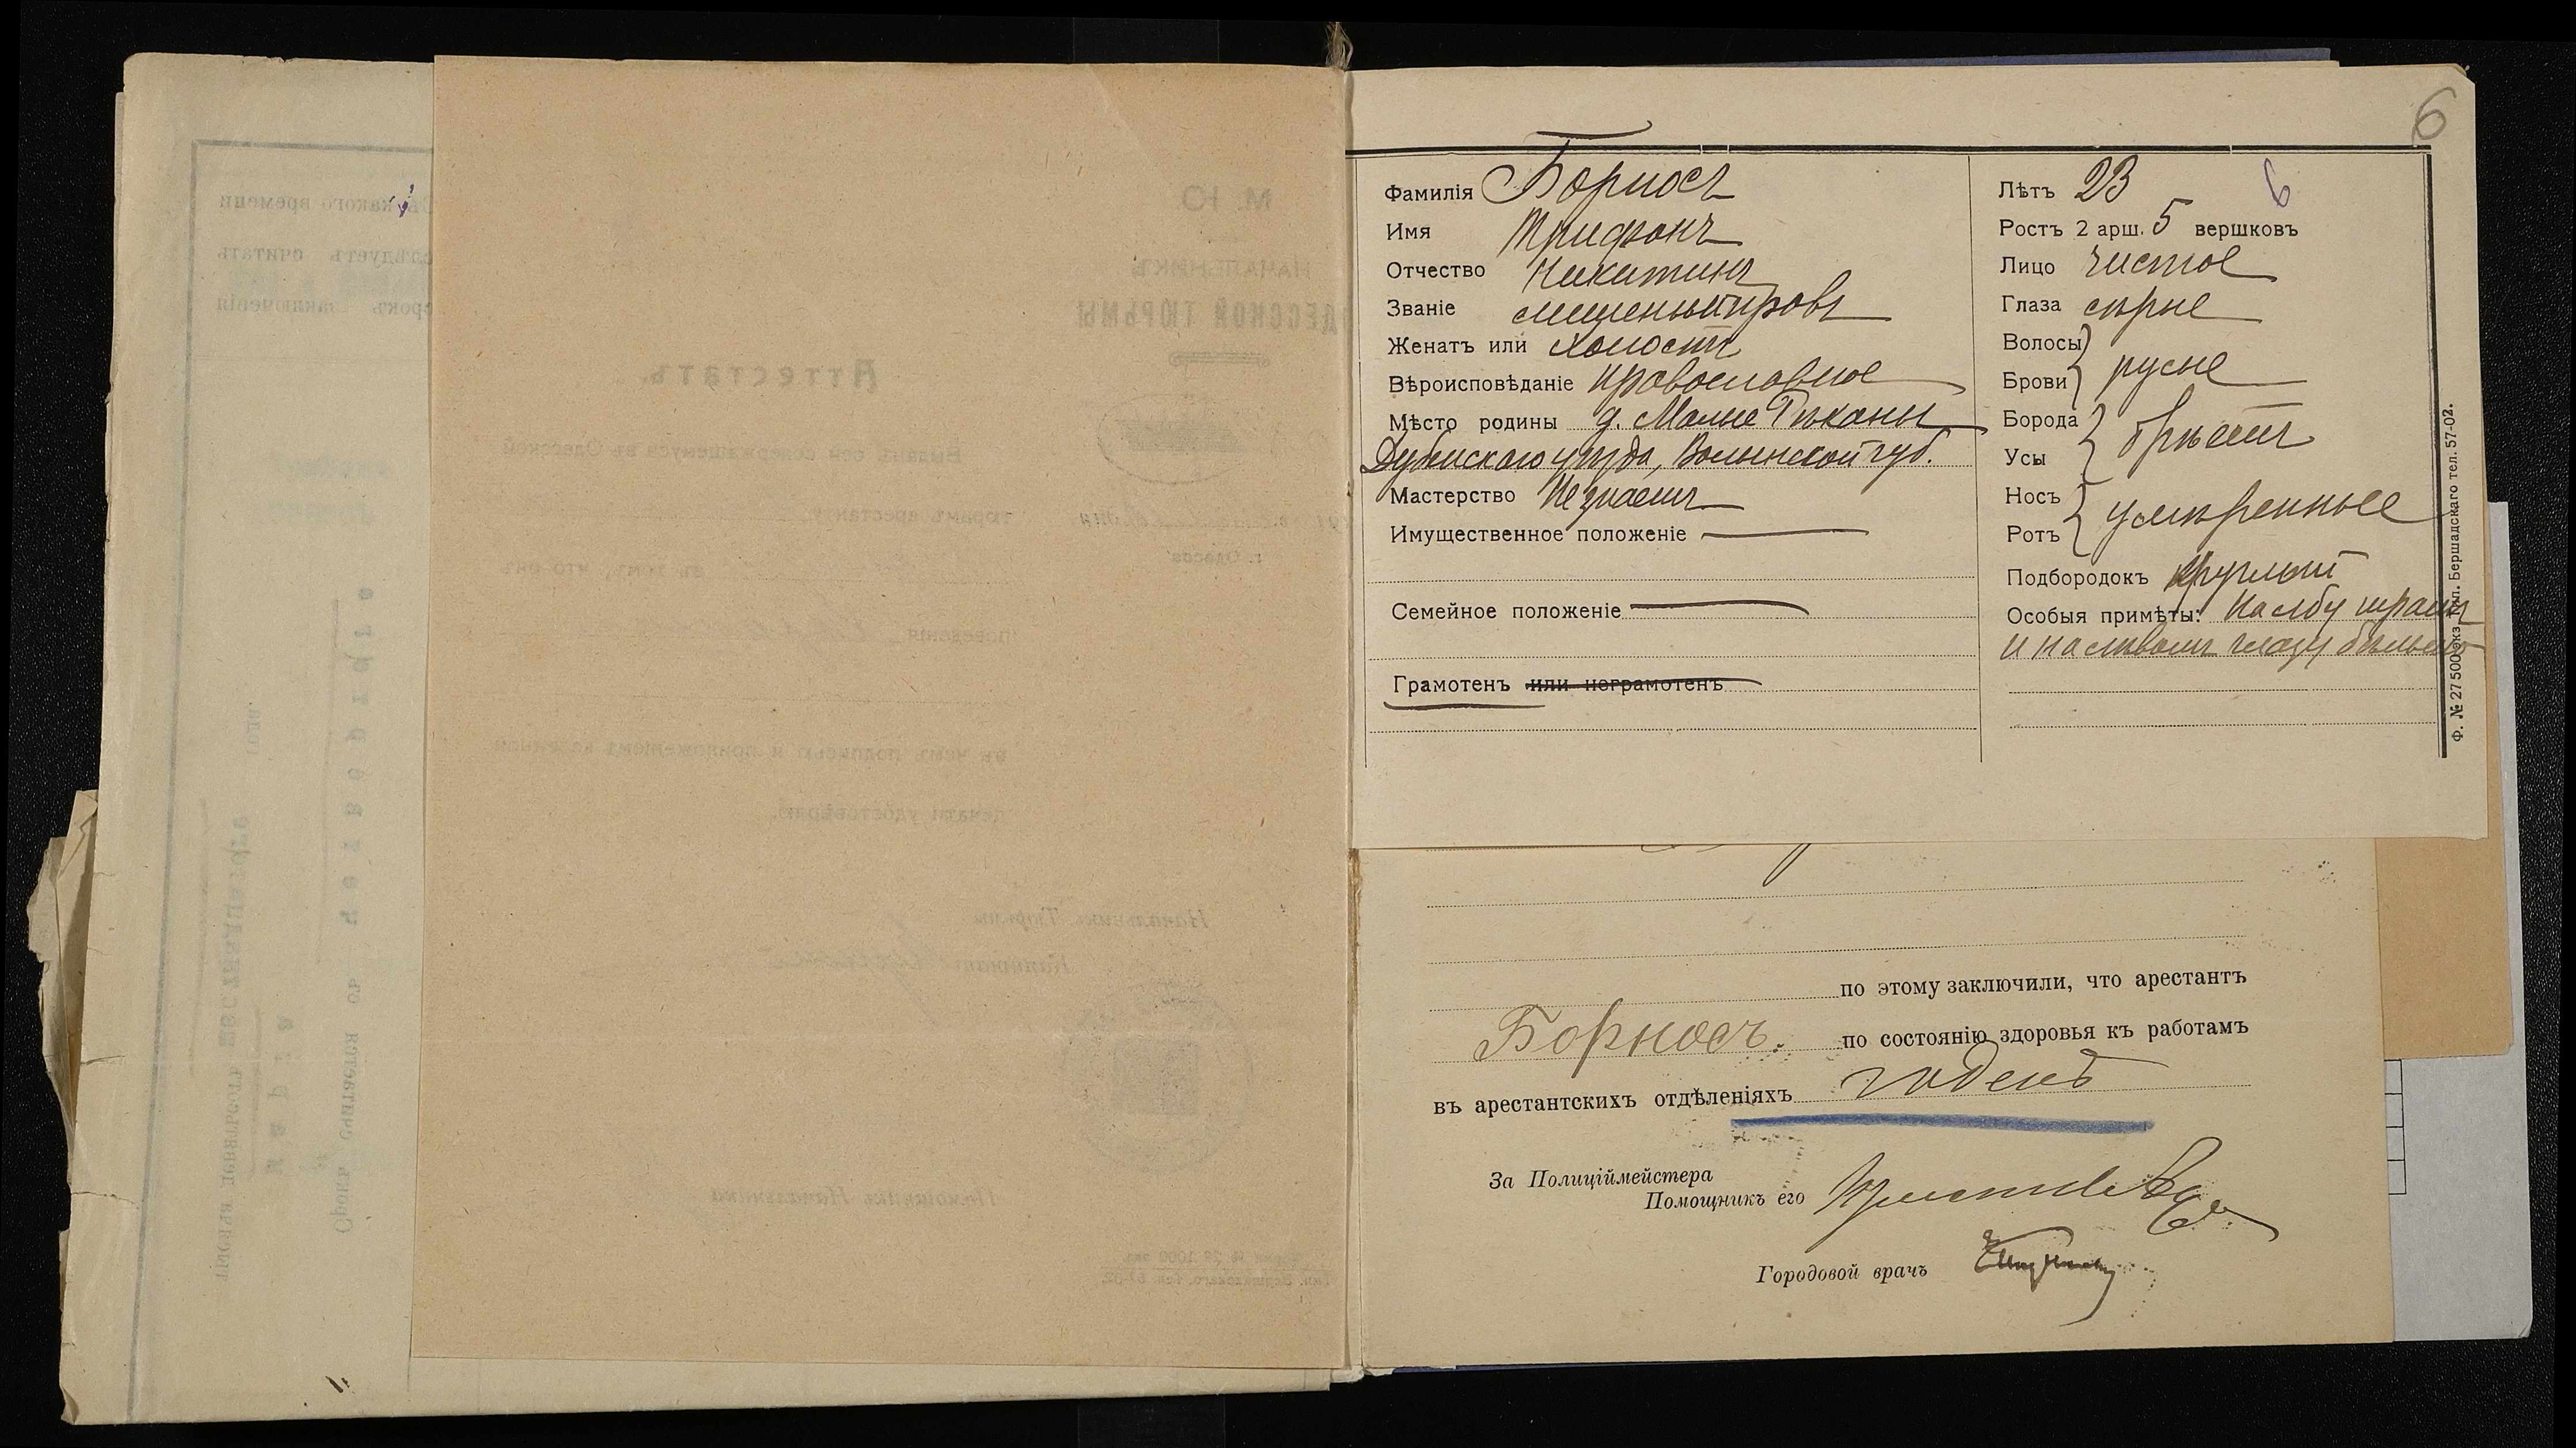 6
Фамилія Борносъ
Имя Трифонъ
Отчество Никитинъ
Званіе
Женатъ или холостъ
Вѣроисповѣданіе православное
Мѣсто родины д. Малые
Дубенскаго уѣзда, Волынской губ.
Мастерство не знаетъ
Имущественное положеніе
Семейное положеніе
Грамотенъ или неграмотенъ
Лѣтъ 23 6
Ростъ 2 арш. 5 вершковъ
Лицо чистое
Глаза сѣрые
Волосы
Брови русые
Борода
Усы брѣетъ
Носъ
Ротъ умѣренные
Подбородокъ круглый
Особыя примѣты: На лбу шрамъ
и на лѣвомъ глазу бѣльмо
Ф. № 27 5000 экз. Тип. Бершадскаго тел. 57-02.
по этому заключили, что арестантъ
Борносъ. по состоянію здоровья къ работамъ
въ арестантскихъ отдѣленіяхъ годенъ
За Полиціймейстера
Помощникъ его
Городовой врачъ
М. Ю.
НАЧАЛЬНИКЪ
ОДЕССКОЙ ТЮРЬМЫ
г. Одесса
Аттестатъ.
Выданъ сей содержащемуся въ Одесской
тюрьмѣ арестанту
въ томъ, что онъ
поведенія
въ чемъ подписью и приложеніемъ казенной
печати удостовѣряю.
Начальникъ Тюрьмы
Помощникъ Начальника
Съ какого времени
слѣдуетъ считать
срокъ заключенія
Срокъ считается съ четвертаго
марта
тысяча девятьсотъ шестнадцатаго года.